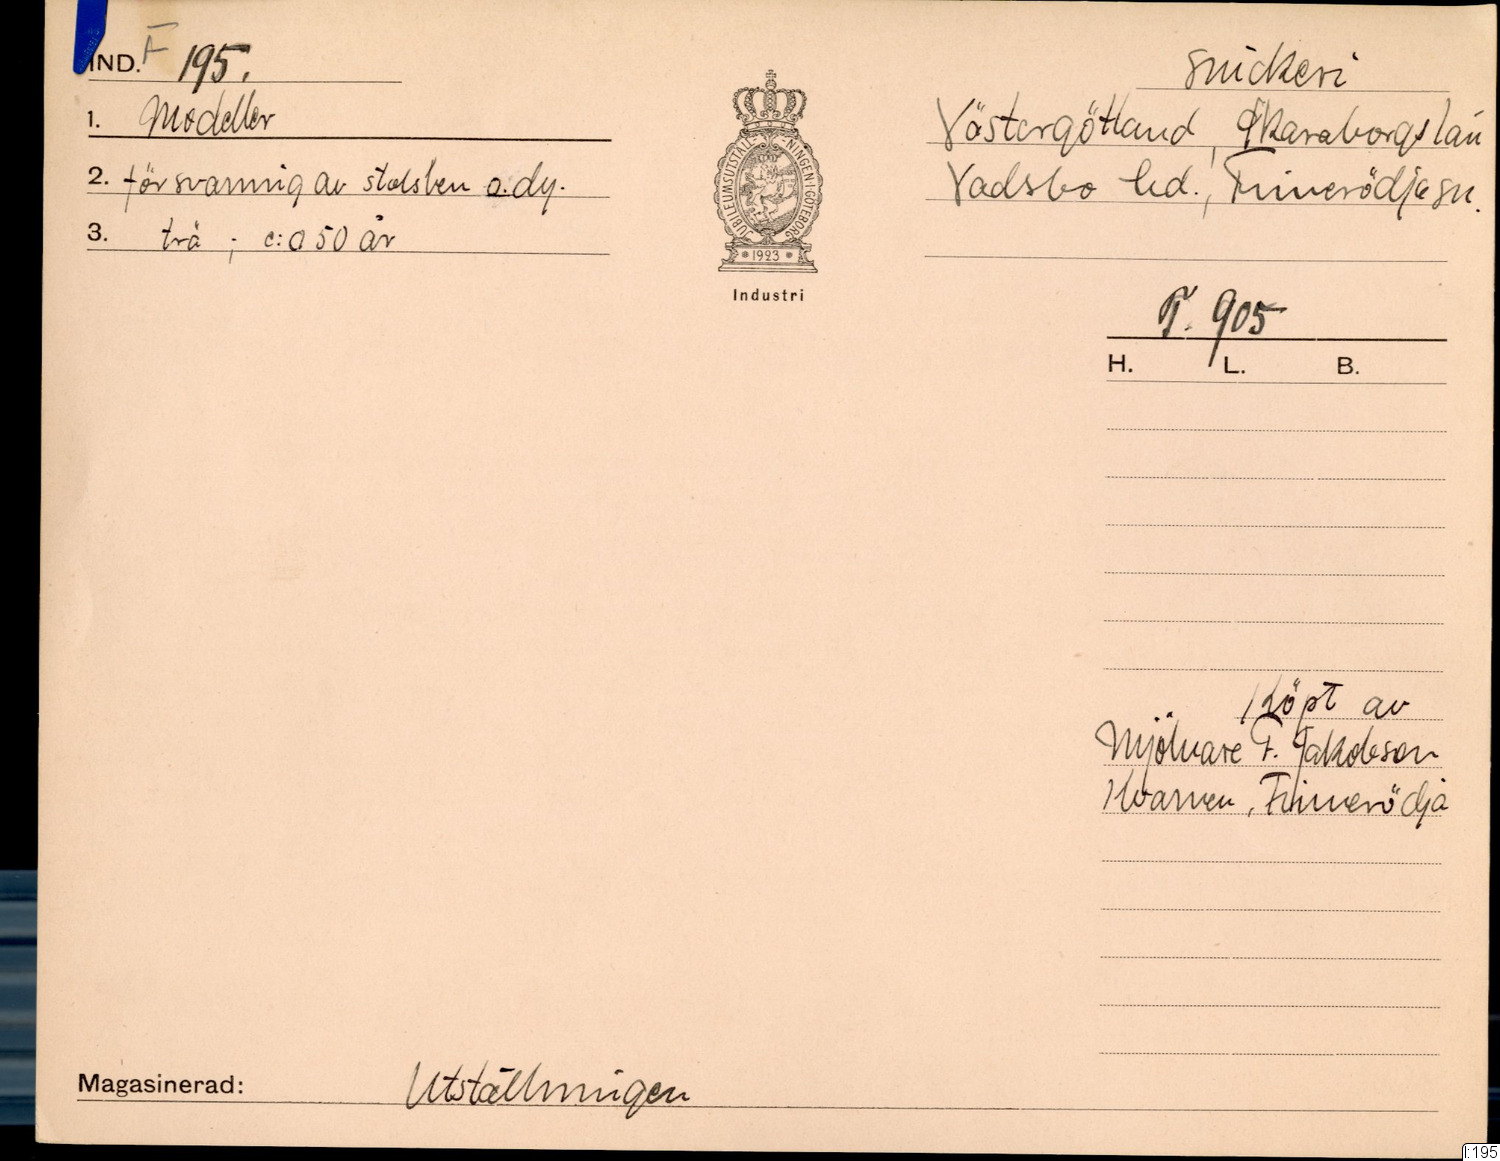 IND. F 195.
1. Modeller
2. för svarvning av stolsben o. dy.
3. trä ; c:a 50 år
JUBILEUMSUTSTÄLLNINGEN I GÖTEBORG
1923
Industri
Snickeri
Västergötland, Skaraborgs län
Vadsbo hd., Finnerödja sn.
T. 905
H. L. B.
Köpt av
Mjölnare F. Jakobson
Kvarnen, Finnerödja
Magasinerad: Utställningen
I:195